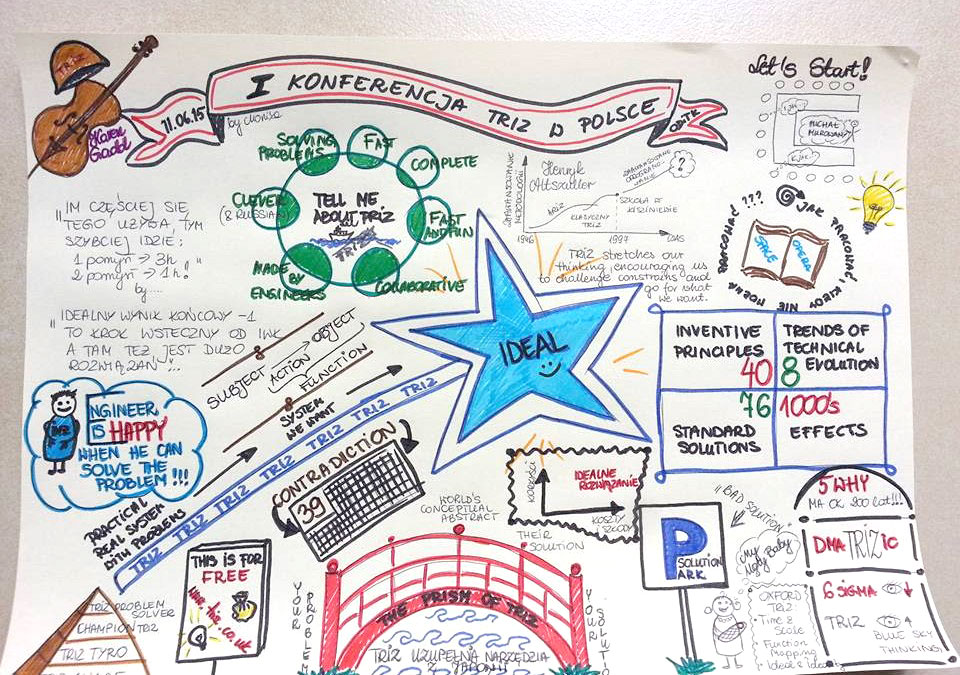 I KONFERENCJA TRIZ W POLSCE
11.06.15
OPITE
TRIZ
Karen
Gadd
Let's Start!
MICHAŁ
SOLVING
PROBLEMS
FAST
COMPLETE
FAST
AND FUN
COLLABORATIVE
MADE
BY
ENGINEERS
CLEVER
(& RUSSIAN)
TELL ME
ABOUT TRIZ
TRIZ
"IM CZĘŚCIEJ SIĘ
TEGO UŻYWA, TYM
SZYBCIEJ IDZIE:
1 pomysł → 3h
2 pomysł → 1h!"
by....
"IDEALNY WYNIK KOŃCOWY -1
TO KROK WSTECZNY OD IWK
A TAM TEŻ JEST DUŻO
ROZWIĄZAŃ"...
ZAAWANSOWANIE
METODOLOGII
Henryk
Altszuller
TRIZ
KLASYCZNY
TRIZ
SZKOŁA W
KISZINIEWIE
?
1946
1997
CZAS
TRIZ stretches our
thinking, encouraging us
to challenge constraints and
go for what
we want.
JAK PRACOWAĆ KIEDY NIE MOŻNA PRACOWAĆ ???
SPACE
OPERA
IDEAL
INVENTIVE
PRINCIPLES
40
TRENDS OF
TECHNICAL
EVOLUTION
8
76
STANDARD
SOLUTIONS
1000's
EFFECTS
SUBJECT → ACTION → OBJECT
FUNCTION
SYSTEM
WE WANT
TRIZ TRIZ TRIZ TRIZ TRIZ TRIZ TRIZ
PRACTICAL
REAL SYSTEM
WITH PROBLEMS
ENGINEER
IS HAPPY
WHEN HE CAN
SOLVE THE
PROBLEM!!!
CONTRADICTION
39
WORLD'S
CONCEPTUAL
ABSTRACT
KORZYŚCI
IDEALNE
ROZWIĄZANIE
KOSZTY
SZKODY
THEIR
SOLUTION
THIS IS FOR
FREE
TRIZ PROBLEM
SOLVER
CHAMPION TRIZ
TRIZ TYRO
YOUR
PROBLEM
THE PRISM OF TRIZ
TRIZ UZUPEŁNIA NARZĘDZIA
Z JAPONII
YOUR
P
SOLUTION
PARK
"BAD SOLUTION"
My
Ugly Baby
OXFORD
TRIZ:
• Time &
Scale
• Function
Mapping
• Ideal &
5 WHY
MA OK. 200 lat!!!
DMATRIZIC
6 SIGMA
TRIZ
BLUE SKY
THINKING